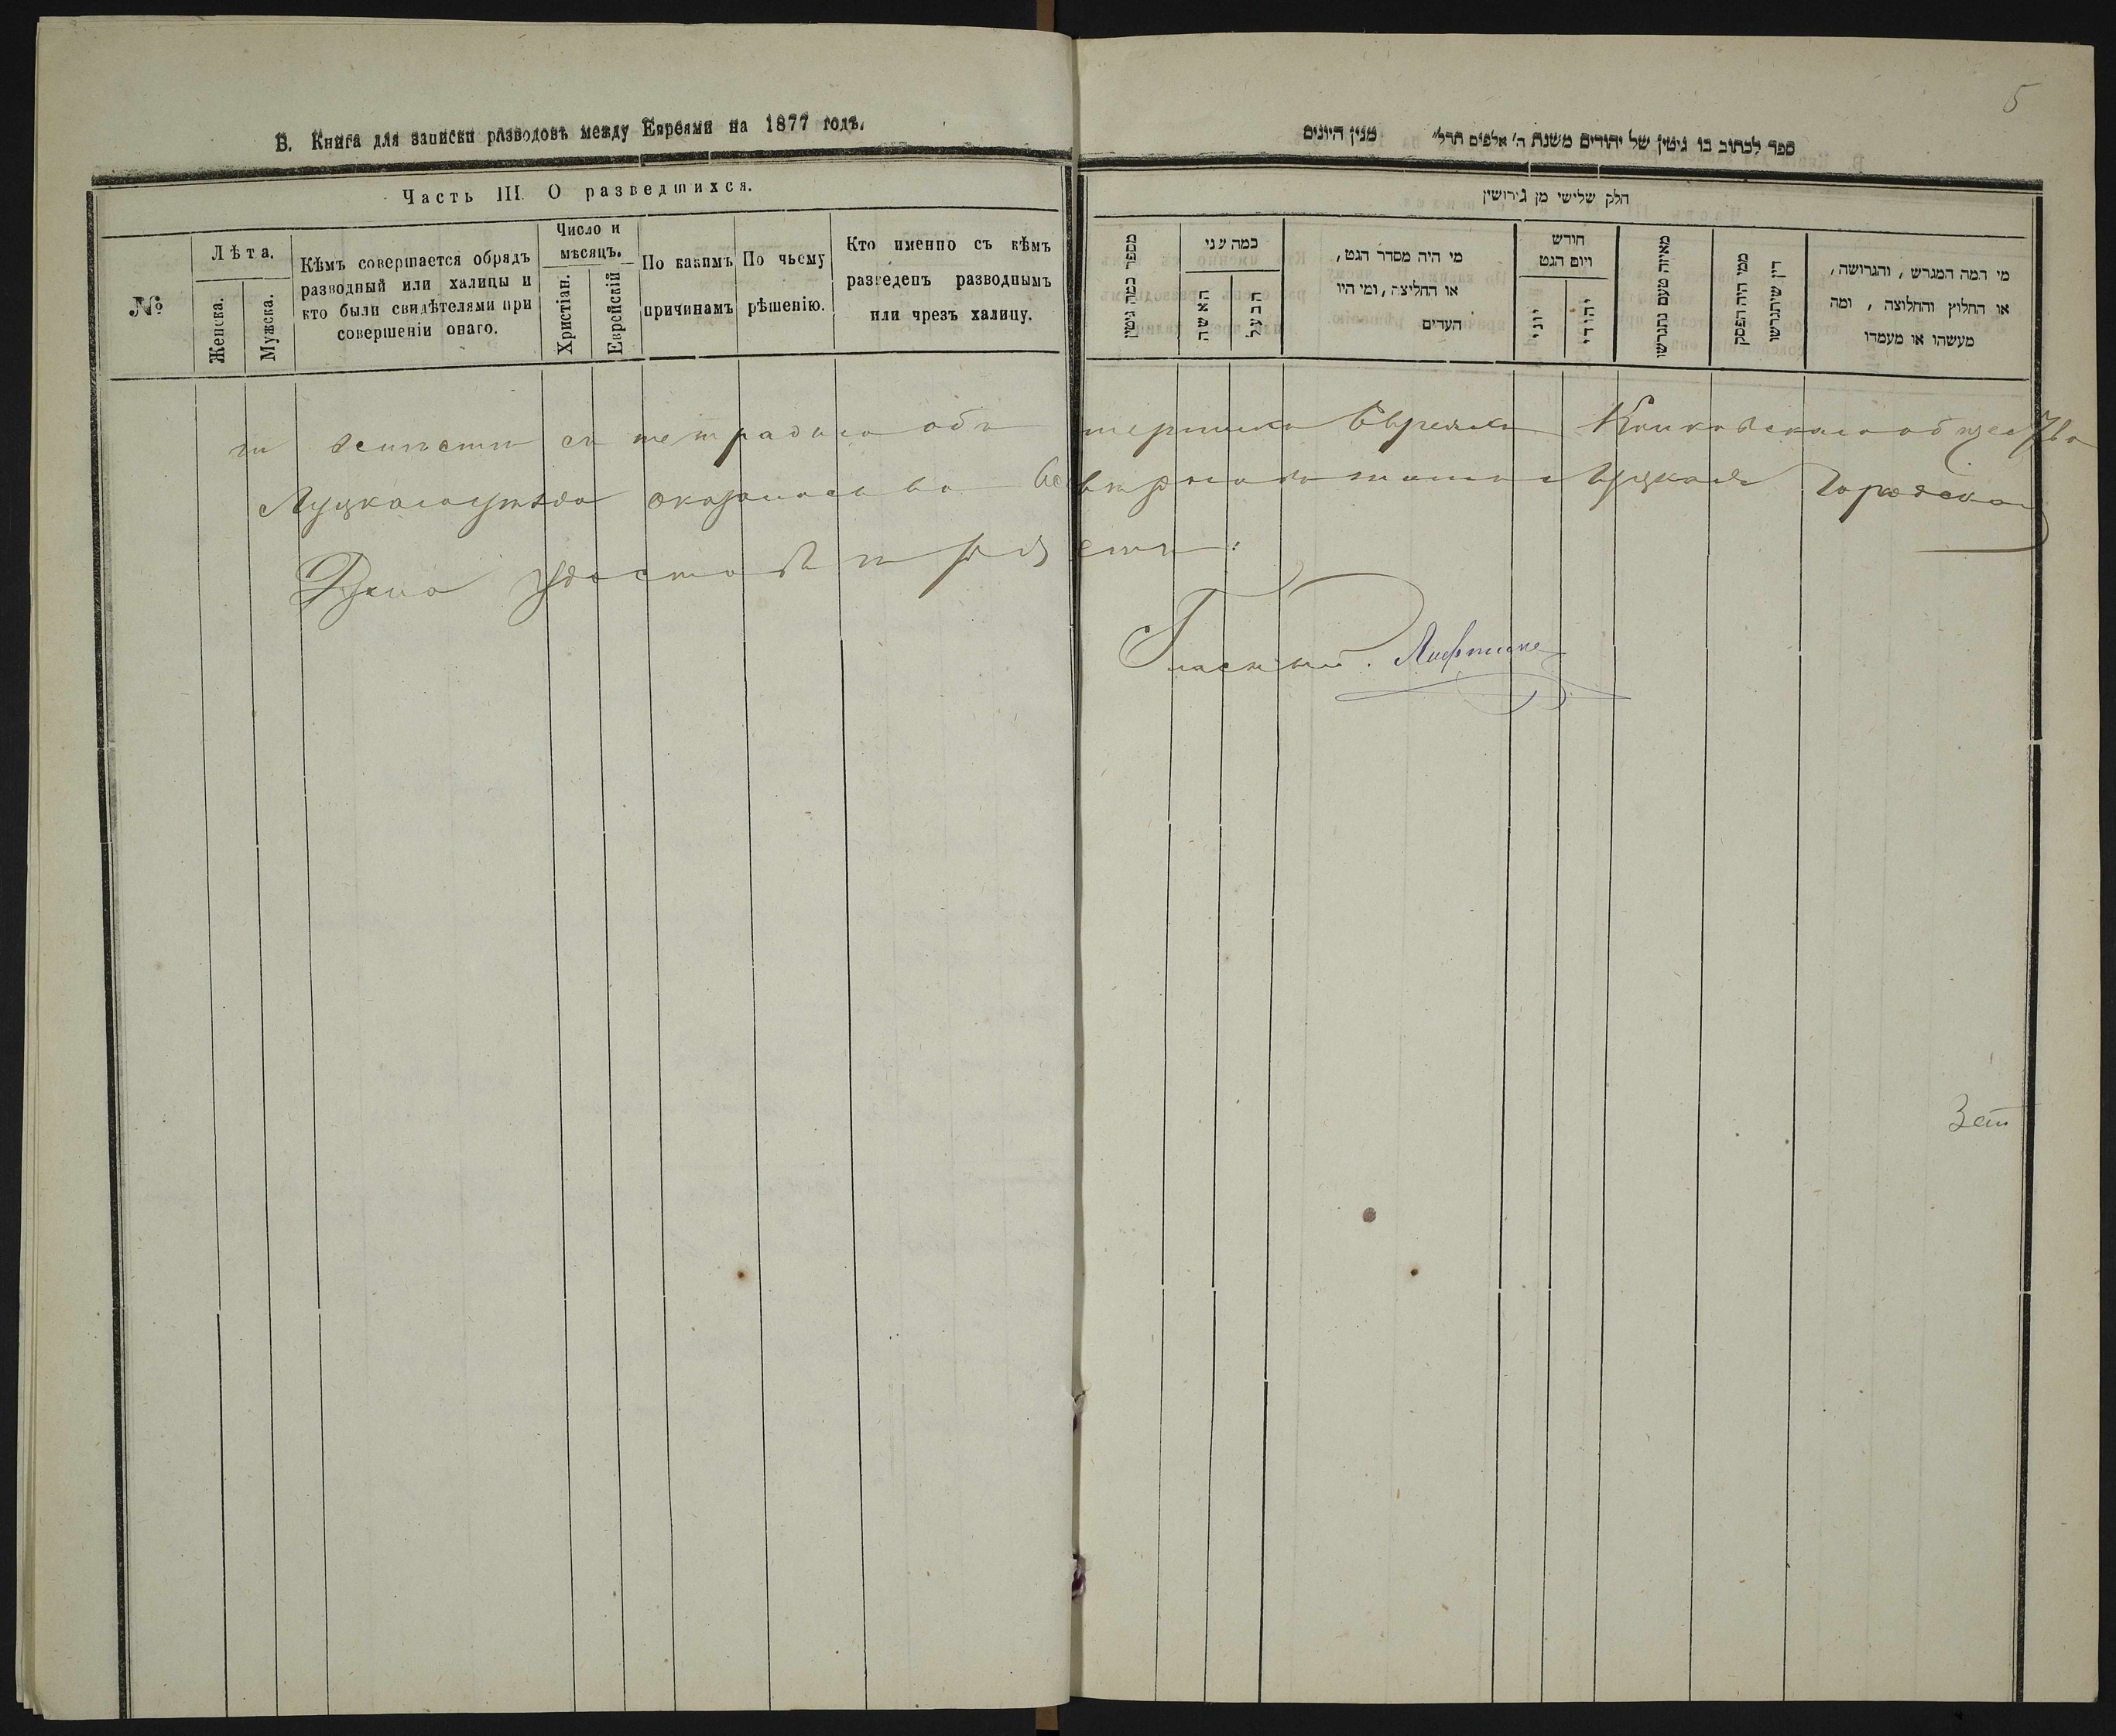 5
В. Книга для записки разводовъ между Евреями на 1877 годъ.
ספר לכתוב בו גיטין של יהודים משנת ה' אלפים תרל" מנין היונים
Часть III. О разведшихся.
חלק שלישי מן גירושין
№
Лѣта.
Женска.
Мужска.
Кѣмъ совершается обрядъ
разводный или халицы и
кто были свидѣтелями при
совершеніи онаго.
Число и
мѣсяцъ.
Христіан.
Еврейскій
По какимъ
причинамъ
По чьему
рѣшенію.
Кто именно съ кѣмъ
разведенъ разводнымъ
или чрезъ халицу.
מספר כמה גיטין
כמה שני
האשה
הבעל
מי היה מסדר הגט,
או החליצה, ומי היו
העדים
חודש
ויום הגט
יוני
יהודי
מאיזה טעם נתגרשו
ממי היה הפסק
דין שיתגרשו
מי המה המגרש, והגרושה,
או החלוץ והחלוצה, ומה
מעשהו או מעמדו
тетрадью объ умершихъ Евреяхъ общества
Луцкаго уѣзда оказалось во всемъ Луцкая Городская
Дума
Гласный. Лифшицъ